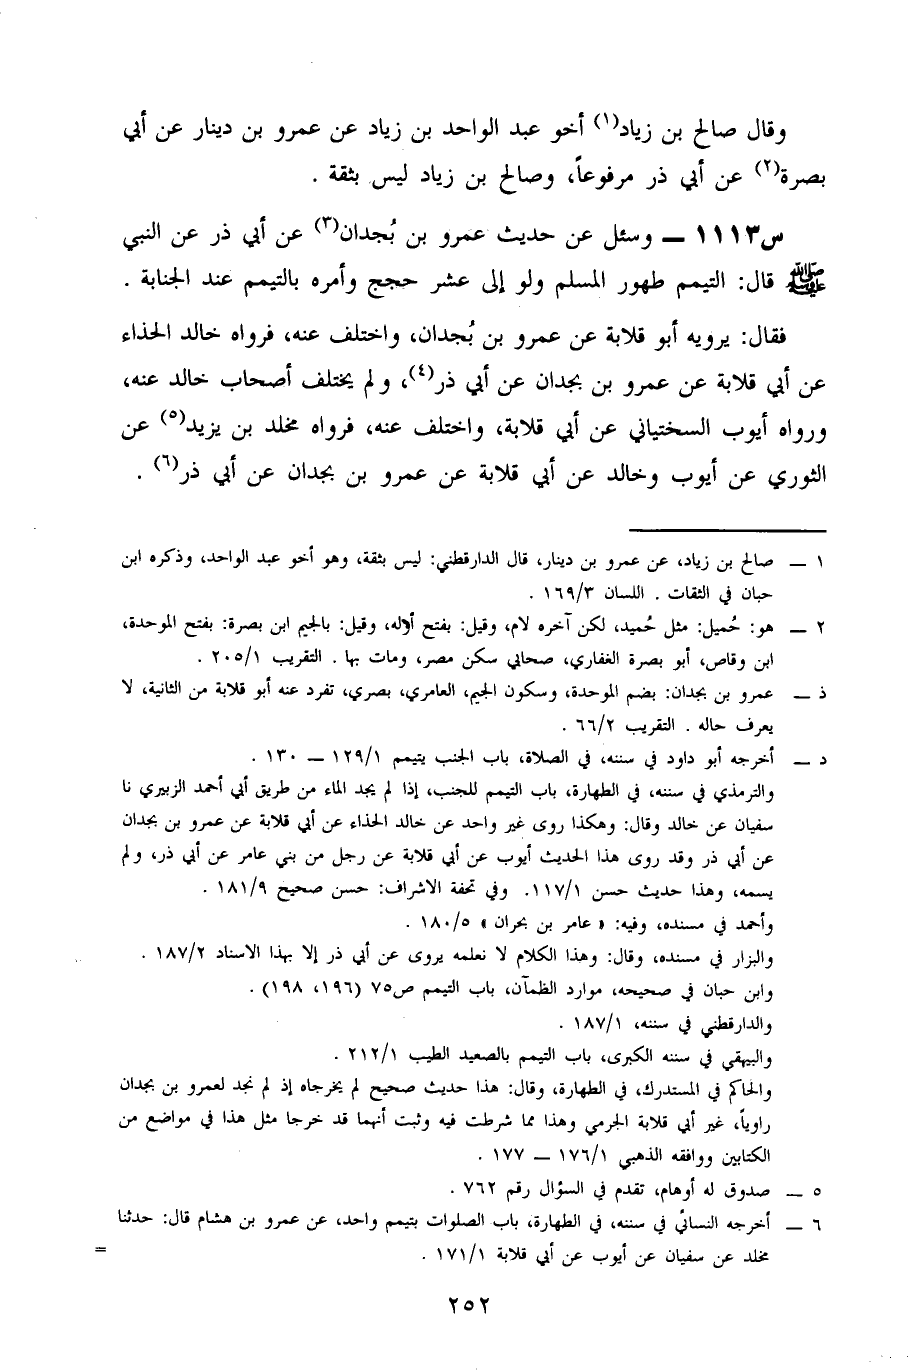 وقال صالح بن زياد(١) أخو عبد الواحد بن زياد عن عمرو بن دينار عن أبي
بصرة(٢) عن أبي ذر مرفوعاً، وصالح بن زياد ليس بثقة .
س١١١٣ ــ وسئل عن حديث عمرو بن بُجدان(٣) عن أبي ذر عن النبي
ﷺ قال: التيمم طهور المسلم ولو إلى عشر حجج وأمره بالتيمم عند الجنابة .
فقال: يرويه أبو قلابة عن عمرو بن بُجدان، واختلف عنه، فرواه خالد الحذاء
عن أبي قلابة عن عمرو بن بجدان عن أبي ذر(٤)، ولم يختلف أصحاب خالد عنه،
ورواه أيوب السختياني عن أبي قلابة، واختلف عنه، فرواه مخلد بن يزيد(٥) عن
الثوري عن أيوب وخالد عن أبي قلابة عن عمرو بن بجدان عن أبي ذر(٦) .
١ ــ صالح بن زياد، عن عمرو بن دينار، قال الدارقطني: ليس بثقة، وهو أخو عبد الواحد، وذكره ابن
حبان في الثقات . اللسان ١٦٩/٣ .
٢ ــ هو: حُميل: مثل حُميد، لكن آخره لام، وقيل: بفتح أوله، وقيل: بالجيم ابن بصرة: بفتح الموحدة،
ابن وقاص، أبو بصرة الغفاري، صحابي سكن مصر، ومات بها . التقريب ٢٠٥/١ .
ذ ــ عمرو بن بجدان: بضم الموحدة، وسكون الجيم، العامري، بصري، تفرد عنه أبو قلابة من الثانية، لا
يعرف حاله . التقريب ٦٦/٢ .
د ــ أخرجه أبو داود في سننه، في الصلاة، باب الجنب يتيمم ١٢٩/١ ــ ١٣٠ .
والترمذي في سننه، في الطهارة، باب التيمم للجنب، إذا لم يجد الماء من طريق أبي أحمد الزبيري نا
سفيان عن خالد وقال: وهكذا روى غير واحد عن خالد الحذاء عن أبي قلابة عن عمرو بن بجدان
عن أبي ذر وقد روى هذا الحديث أيوب عن أبي قلابة عن رجل من بني عامر عن أبي ذر، ولم
يسمه، وهذا حديث حسن ١١٧/١. وفي تحفة الاشراف: حسن صحيح ١٨١/٩ .
وأحمد في مسنده، وفيه: « عامر بن بحران » ١٨٠/٥ .
والبزار في مسنده، وقال: وهذا الكلام لا نعلمه يروى عن أبي ذر إلا بهذا الاسناد ١٨٧/٢ .
وابن حبان في صحيحه، موارد الظمآن، باب التيمم ص٧٥ (١٩٦، ١٩٨) .
والدارقطني في سننه، ١٨٧/١ .
والبيهقي في سننه الكبرى، باب التيمم بالصعيد الطيب ٢١٢/١ .
والحاكم في المستدرك، في الطهارة، وقال: هذا حديث صحيح لم يخرجاه إذ لم نجد لعمرو بن بجدان
راوياً، غير أبي قلابة الجرمي وهذا مما شرطت فيه وثبت أنهما قد خرجا مثل هذا في مواضع من
الكتابين ووافقه الذهبي ١٧٦/١ ــ ١٧٧ .
٥ ــ صدوق له أوهام، تقدم في السؤال رقم ٧٦٢ .
٦ ــ أخرجه النسائي في سننه، في الطهارة، باب الصلوات بتيمم واحد، عن عمرو بن هشام قال: حدثنا
مخلد عن سفيان عن أيوب عن أبي قلابة ١٧١/١ . =
٢٥٢